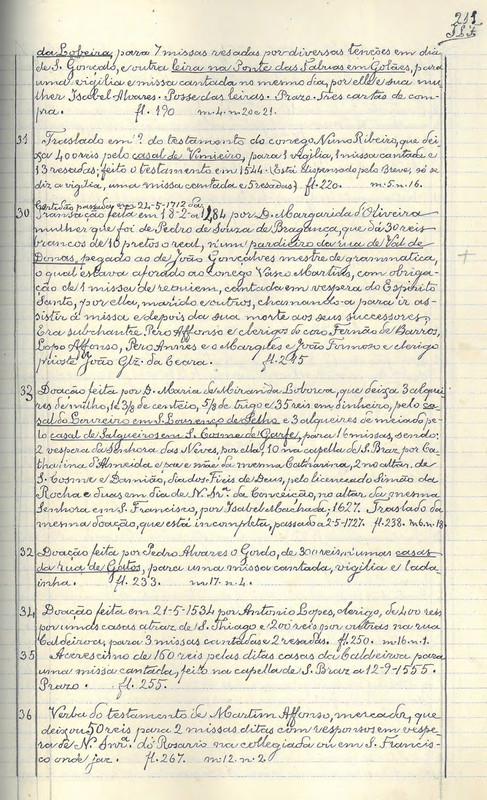 211
da Lobeira, para 7 missas resadas por diversas tenções em dia
de S. Gonçalo, e outra leira na Ponte das Tabuas em Golães, para
uma vigilia e missa cantada no mesmo dia, por elle e sua mu-
lher Isabel Alvares. Posse das leiras. Prazo. Tres cartas de com-
pra. fl. 190 m. 4. n. 20 e 21.
31 Traslado em ? do testamento do conego Nuno Ribeiro, que dei-
xa 400 reis pelo casal de Vimieiro, para 1 vigilia, 1 missa cantada e
13 resadas; feito o testamento em 1544. (Está dispensado pelo Breve, só se
diz a vigilia, uma missa cantada e 5 resadas) fl. 220. m. 5. n. 16.
Certidão passada em 24-5-1712 da
30 Transação feita em 18-2- por D. Margarida d'Oliveira
mulher que foi de Pedro de Souza de Bragança, que dá 30 reis
brancos de 10 pretos o real, n'um pardieiro da rua de Val de
Donas, pegado ao de João Gonçalves mestre de grammatica,
o qual estava aforado ao conego Vasco Martins, com obriga-
ção de 1 missa de requiem, cantada em vespera do Espirito
Santo, por ella, marido e outros, chamando-a para ir as-
sistir á missa e depois da sua morte aos seus successores.
Era subchantre Pero Affonso e clerigos do coro, Fernão de Barros,
Lopo Affonso, Pero Annes e o Marqles e João Formoso e clerigo
prioste João Glz. da Ceara. fl. 245
33 Doação feita por D. Maria de Miranda Loborca, que deixa 3 alquei
res de milho, 1 e 3/3 de centeio, 5/3 de trigo e 35 reis em dinheiro, pelo ca-
sal do Loureiro em S. Lourenço de Selho e 3 alqueires de meiado pe-
lo casal de Salgueiros em S. Cosme de Garfe, para 16 missas, sendo:
2 vespera da Senhora das Neves, por ella, 10 na capella de S. Braz por Ca-
tharina d'Almeida e pae e mãe da mesma Catharina, 2 no altar de
S. Cosme e Damião, dia dos Fieis de Deus, pelo licenciado Simão da
Rocha e duas em dia de N. Snrª. da Conceição, no altar da mesma
Senhora em S. Francisco, por Isabel Machada. 1627. Traslado da
mesma doação, que está incompleta, passado a 2-5-1727. fl. 238. m. 6. n. 18
32 Doação feita por Pedro Alvares o Gordo, de 300 reis n'umas casas
da rua de Gatos, para uma missa cantada, vigilia e lada-
inha. fl. 233. m. 17. n. 4.
34 Doação feita em 21-5-1534 por Antonio Lopes, clerigo, de 400 reis
por umas casas atraz de S. Thiago e 200 reis por outras na rua
Caldeirôa, para 3 missas cantadas e 2 resadas. fl. 250. m. 16. n. 1.
35 Accrescimo de 160 reis pelas ditas casas da Caldeirôa para
uma missa cantada, feito na capella de S. Braz a 12-9-1555.
Prazo. fl. 255.
36 Verba do testamento de Martim Affonso, mercador, que
deixou 50 reis para 2 missas ditas com responsos em vespe-
ra de N. Snrª. do Rosario na collegiada ou em S. Francis-
co onde jaz. fl. 267. m. 12. n. 2.